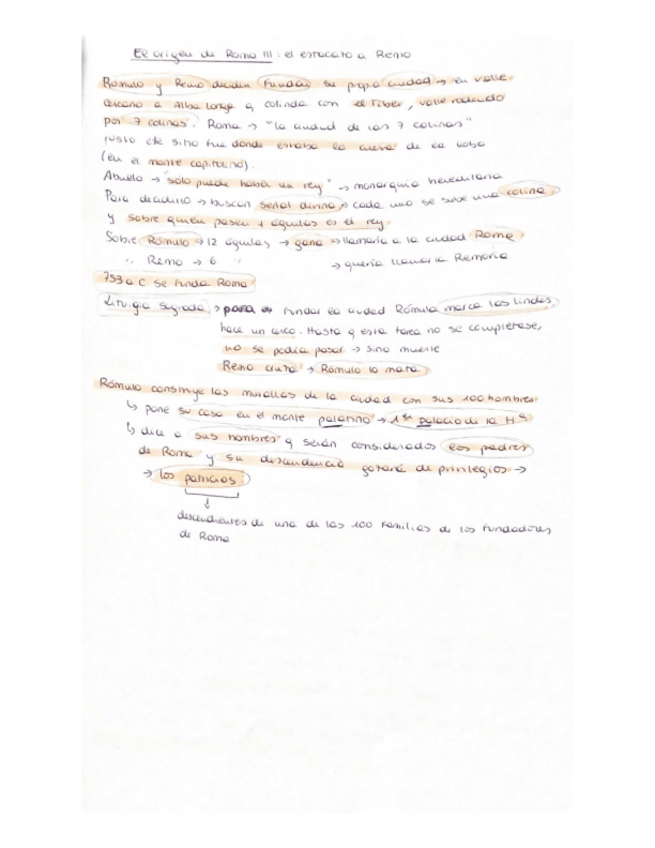 El origen de Roma III: el estucato a Remo
Rómulo y Remo deciden fundar su propia ciudad → en valle
cercano a Alba Longa q colinda con el Tíber, valle rodeado
por 7 colinas. Roma → "la ciudad de las 7 colinas"
justo ese sitio fue donde estaba la cueva de la loba
(en el monte capitolino).
Abuelo → "solo puede haber un rey" → monarquía hereditaria
Para decidirlo → buscan señal divina → cada uno se sube una colina
y sobre quien pasen + águilas es el rey.
Sobre Rómulo → 12 águilas → gana → llamaría a la ciudad Roma
" Remo → 6 " → quería llamarla Remoria
753 a C. se funda Roma
Liturgia sagrada → para fundar la ciudad Rómulo marca las lindes,
hace un cerco. Hasta q esta tarea no se completase,
no se podía pasar → sino muerte
Remo cruza → Rómulo lo mata
Rómulo construye las murallas de la ciudad con sus 100 hombres
↳ pone su casa en el monte palatino → 1er palacio de la Hª
↳ dice a sus hombres q serán considerados los padres
de Roma y su descendencia gozará de privilegios →
→ los patricios:
↓
descendientes de una de las 100 familias de los fundadores
de Roma